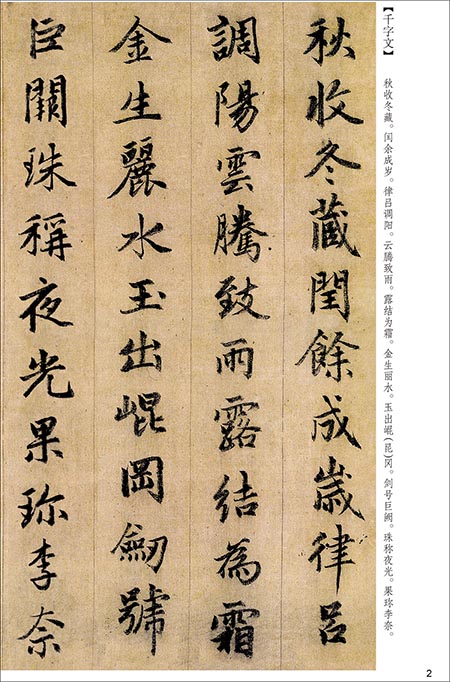 【千字文】
秋收冬藏。闰余成岁。律吕调阳。云腾致雨。露结为霜。金生丽水。玉出崐(昆)冈。剑号巨阙。珠称夜光。果珍李奈。
秋收冬蔵閏餘成歲律呂
調陽雲騰致雨露結為霜
金生麗水玉出崐岡劒號
巨闕珠稱夜光果珎李柰
2